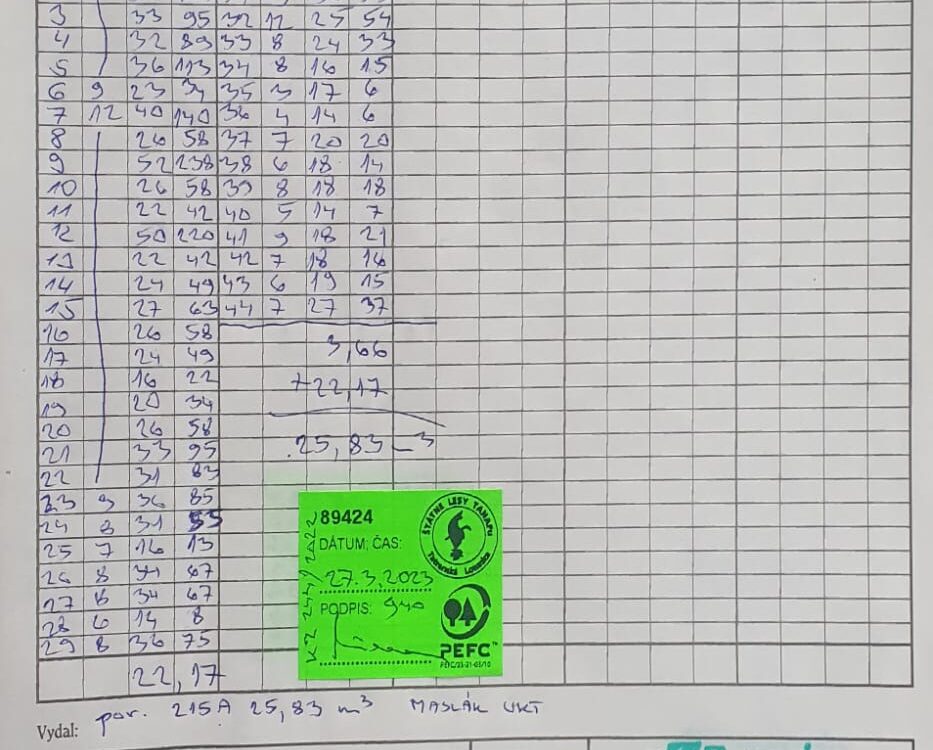 3 33 95 32 12 25 54
4 32 89 33 8 24 33
5 36 113 34 8 16 15
6 9 23 34 35 3 17 6
7 12 40 140 36 4 14 6
8 26 58 37 7 20 20
9 52 238 38 6 18 14
10 26 58 39 8 18 18
11 22 42 40 5 14 7
12 50 220 41 9 18 21
13 22 42 42 7 18 16
14 24 49 43 6 19 15
15 27 63 44 7 27 37
16 26 58
17 24 49 3,66
18 16 22 +22,17
19 20 34
20 26 58
21 33 95 25,83 m3
22 31 83
23 9 36 85
24 8 31 53
25 7 16 13
26 8 34 67
27 8 34 67
28 6 14 8
29 8 36 75
22,17
89424
ŠTÁTNE LESY TANAPU
Tatranská Lomnica
DÁTUM; ČAS:
27.3.2023
PODPIS: 940
PEFC™
por. 215A 25,83 m3 MASLÁK UKT
Vydal: